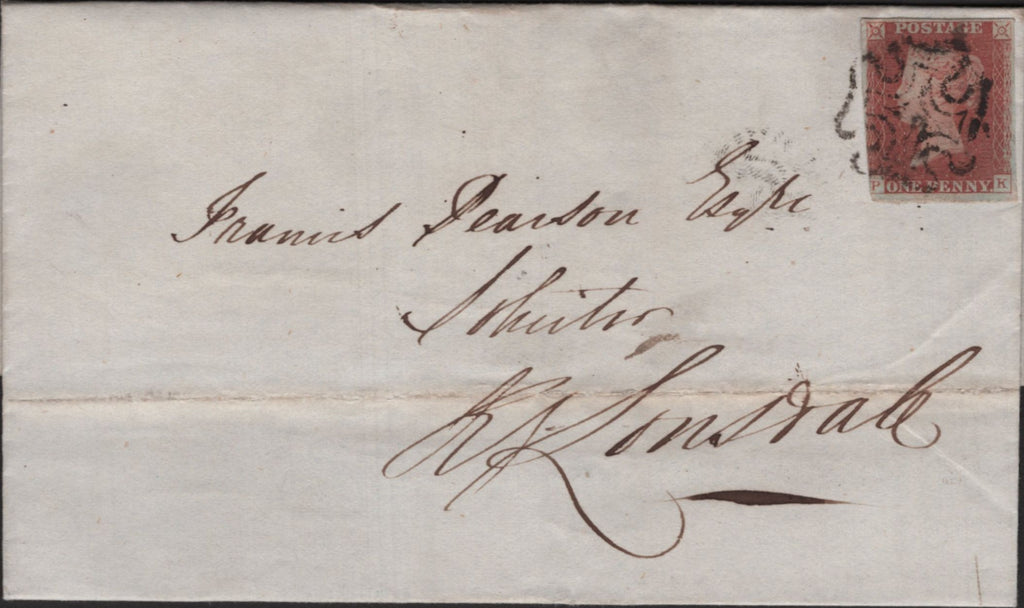 POSTAGE
P ONE PENNY K
Francis Pearson Esqre
Solicitor
K Lonsdale